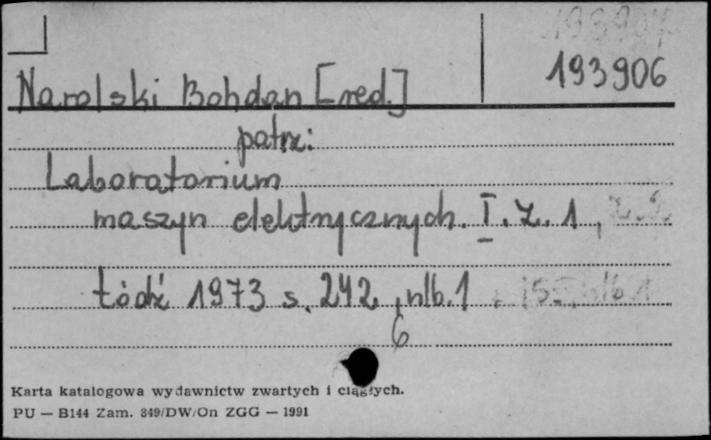 193904
193906
Narolski Bohdan [red.]
patrz:
Laboratorium
maszyn elektrycznych. I. Z. 1, z. 2
Łódź 1973 s. 242, nlb. 1, 155, nlb 1
6
Karta katalogowa wydawnictw zwartych i ciągłych.
PU — B144 Zam. 849/DW/On ZGG — 1991